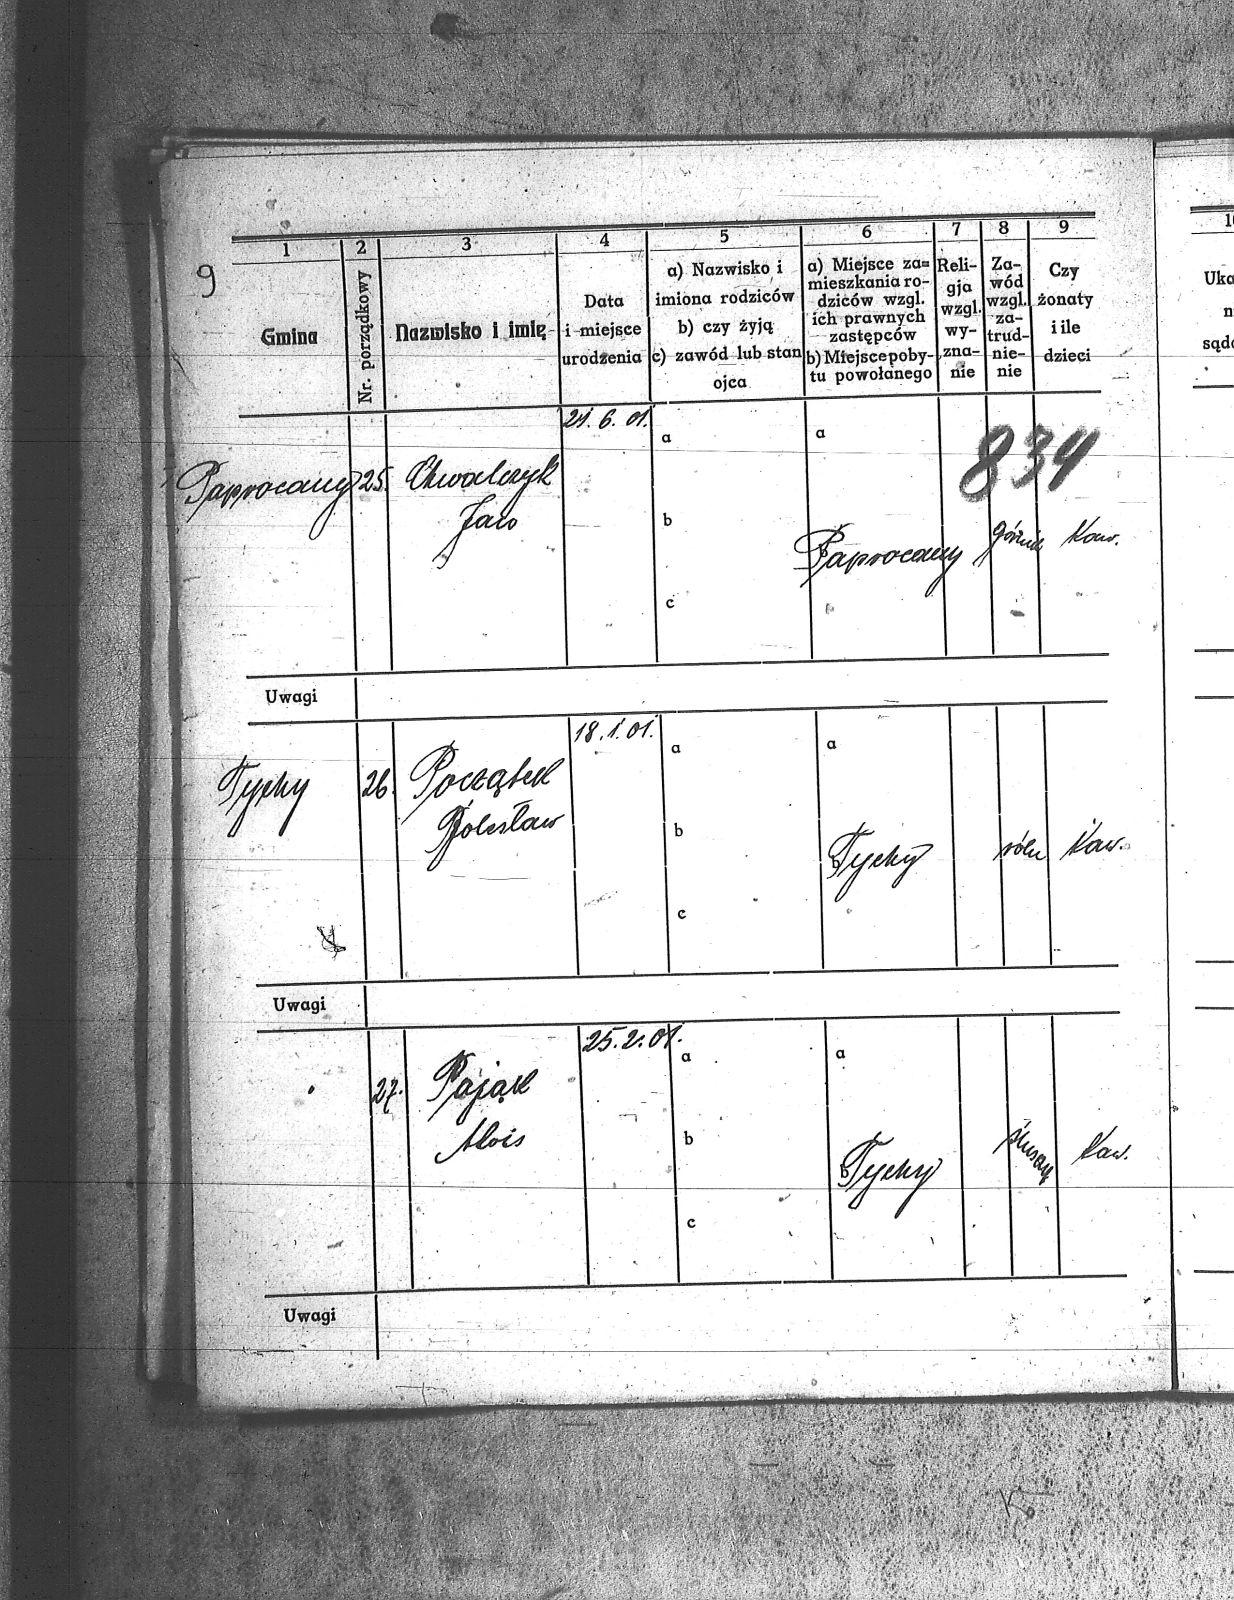 9
1 2 3 4 5 6 7 8 9
Gmina
Nr. porządkowy
Nazwisko i imię
Data
i miejsce
urodzenia
a) Nazwisko i
imiona rodziców
b) czy żyją
c) zawód lub stan
ojca
a) Miejsce za=
mieszkania ro-
dziców wzgl.
ich prawnych
zastępców
b) Miejsce poby-
tu powołanego
Reli-
gja
wzgl.
wy-
zna-
nie
Za-
wód
wzgl.
za-
trud-
nie-
nie
Czy
żonaty
i ile
dzieci
10
Uka
n
sąd
21. 6. 01.
a a
834
Paprocany 25. Chwalczyk
Jan
b
b Paprocany górnik Kaw.
c
Uwagi
18. 1. 01.
a a
Tychy 26. Początek
Bolesław
b
b Tychy roln Kaw.
c
Uwagi
25. 2. 01.
a a
27. Pająk
Alois
b
b Tychy Kaw.
c
Uwagi